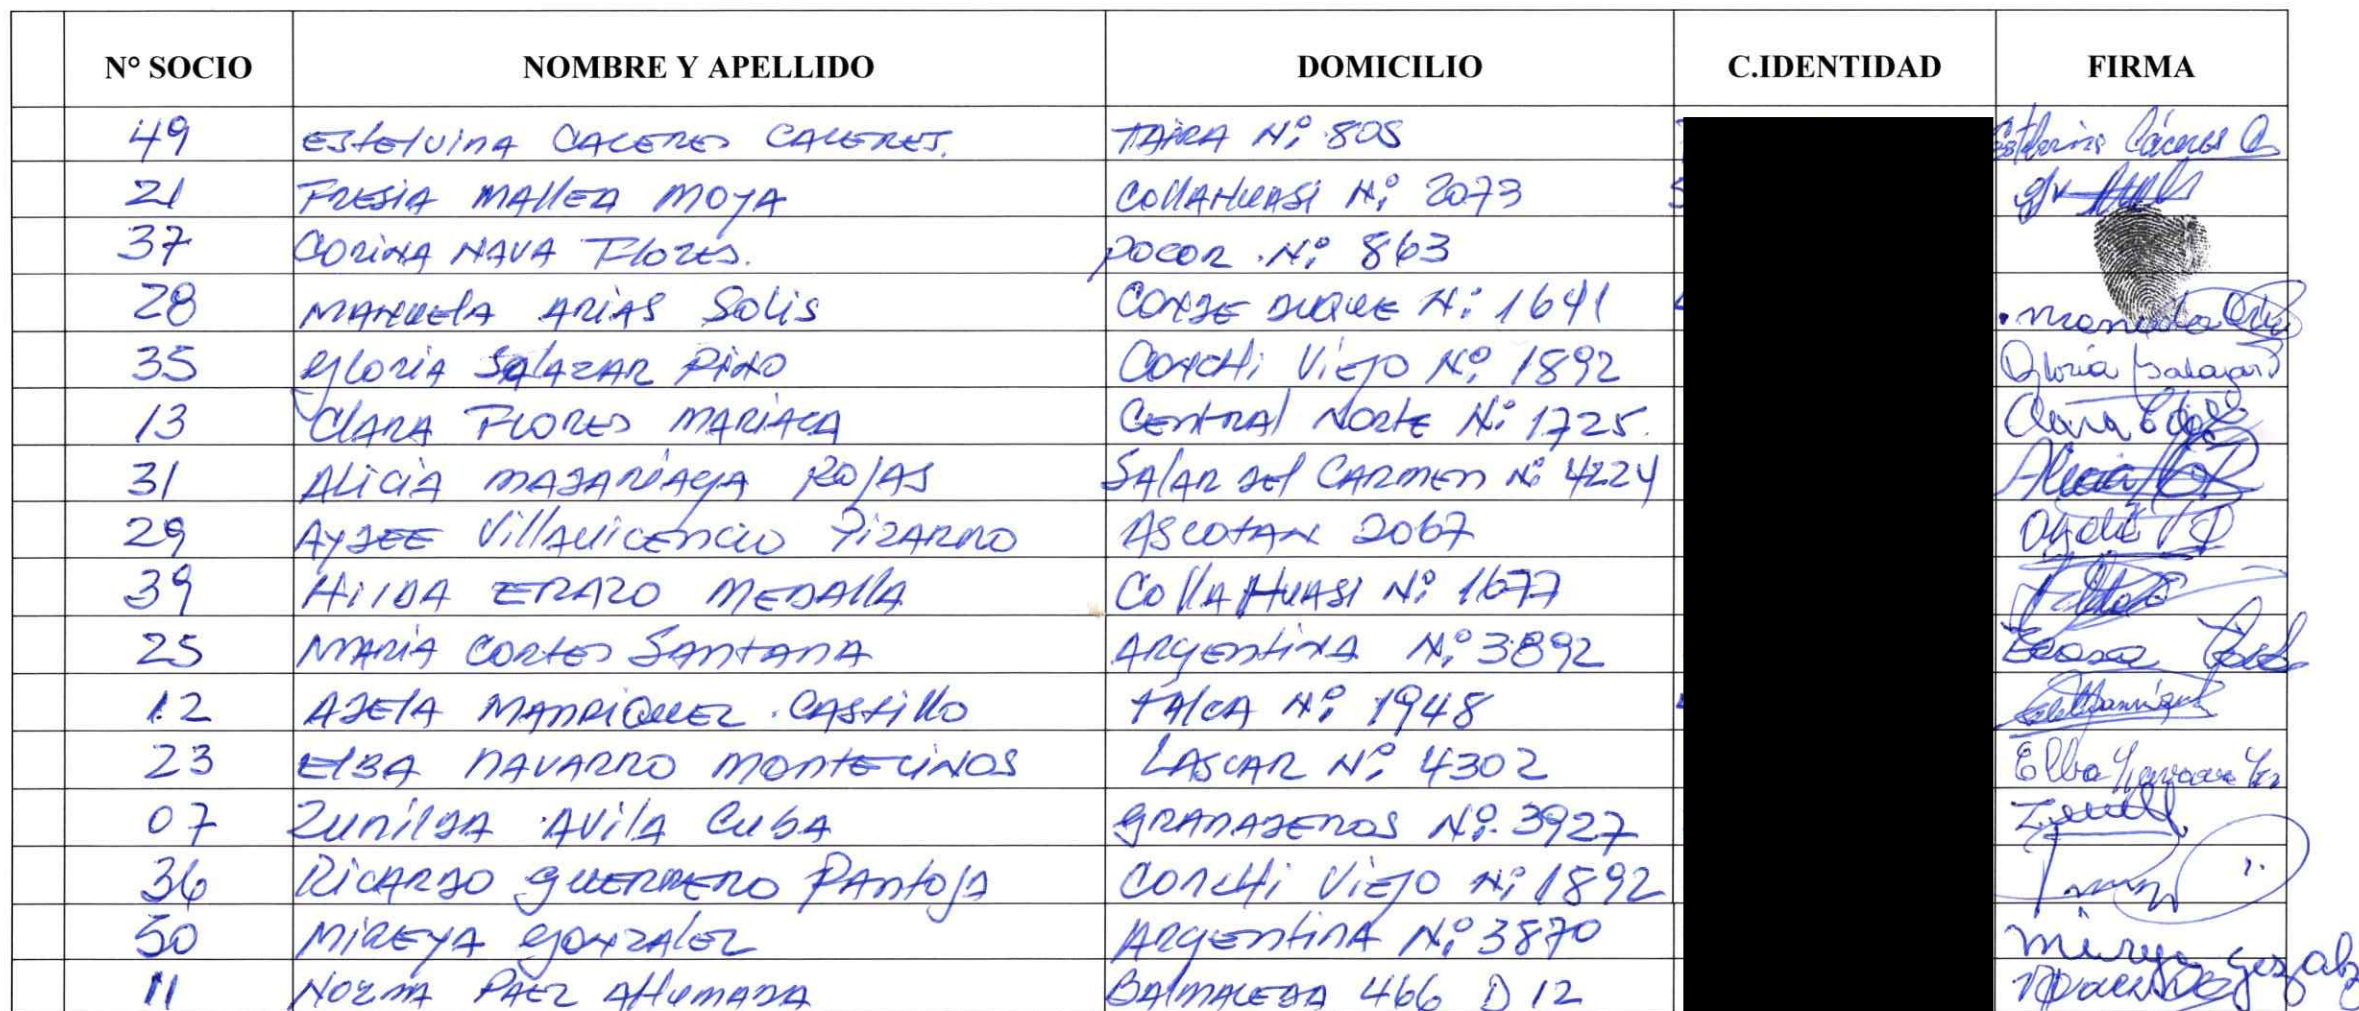 N° SOCIO NOMBRE Y APELLIDO DOMICILIO C.IDENTIDAD FIRMA
49 Estelvina Caceres Caceres. Taira N° 805 Estelvina Cáceres C
21 Fresia Mallea Moya Collahuasi N° 2073
37 Corina Nava Flores. Pocor N° 863
28 Manuela Arias Solis Conde Duque N° 1641 Manuela
35 Gloria Salazar Pino Conchi Viejo N° 1892 Gloria Salazar
13 Clara Flores Mariaca Central Norte N° 1725. Clara
31 Alicia Madariaga Rojas Salar del Carmen N° 4224 Alicia
29 Aydee Villavicencio Pizarro Ascotan 2067
39 Hilda Erazo Medalla Collahuasi N° 1677
25 Maria Cortes Santana Argentina N° 3892
12 Adela Manriquez Castillo Talca N° 1948
23 Elba Navarro Montecinos Lascar N° 4302 Elba Navarro
07 Zunilda Avila Cuba Granaderos N° 3927
36 Ricardo Guerrero Pantoja Conchi Viejo N° 1892
50 Mireya Gonzalez Argentina N° 3870
11 Norma Paez Ahumada Balmaceda 466 D 12